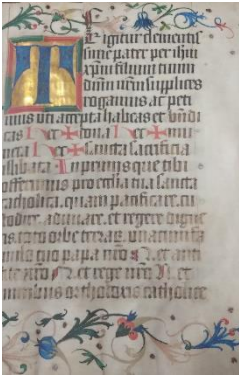 T E igitur clementis
sime pater per ihm
xpm filium tuum
dnm nrm supplices
rogamus ac peti
mus uti accepta habeas et bndi
cas hec ✠ dona hec ✠ mu
nera hec ✠ sancta sacrificia
illibata Inprimis que tibi
offerimus pro ecclia tua sancta
catholica, quam pacificare, cu
stodire, adunare, et regere digne
ris toto orbe terrar, una cum fa
mulo tuo papa nro N et anti
stite nro N et rege nro N et
omnibus orthodoxis catholice